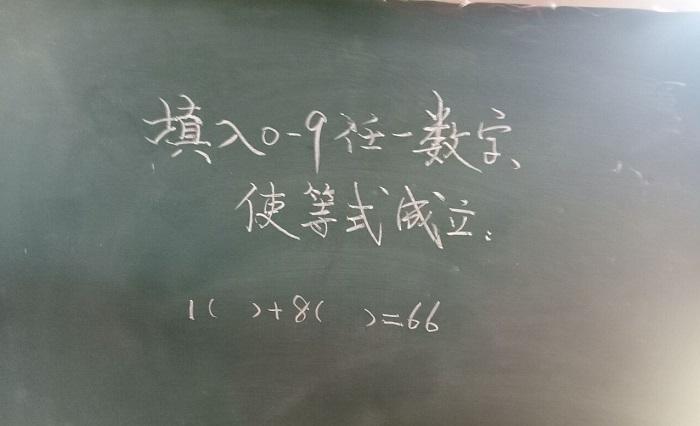 填入0-9任一数字、
使等式成立:
1( )+8( )=66